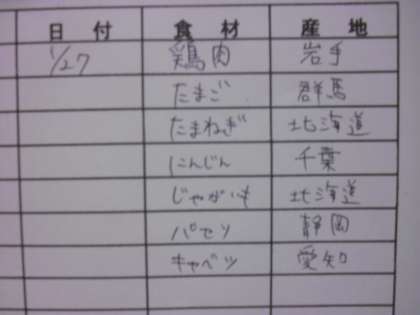 日付 食材 産地
1/27 鶏肉 岩手
たまご 群馬
たまねぎ 北海道
にんじん 千葉
じゃがいも 北海道
パセリ 静岡
キャベツ 愛知